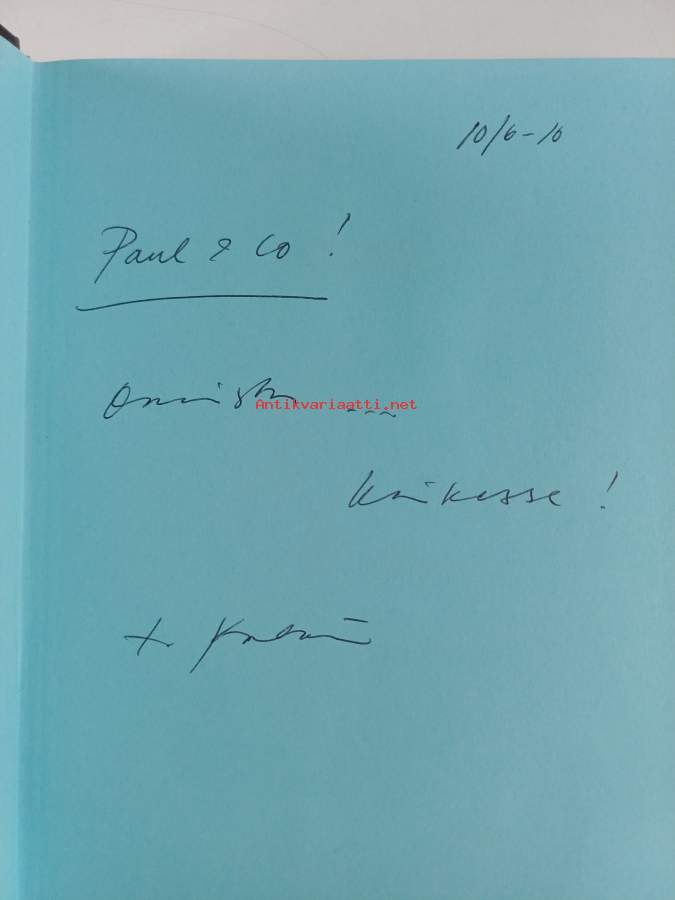 10/6-16
Paul & Co !
Onnistu
Antikvariaatti.net
Kaikessa !
t.